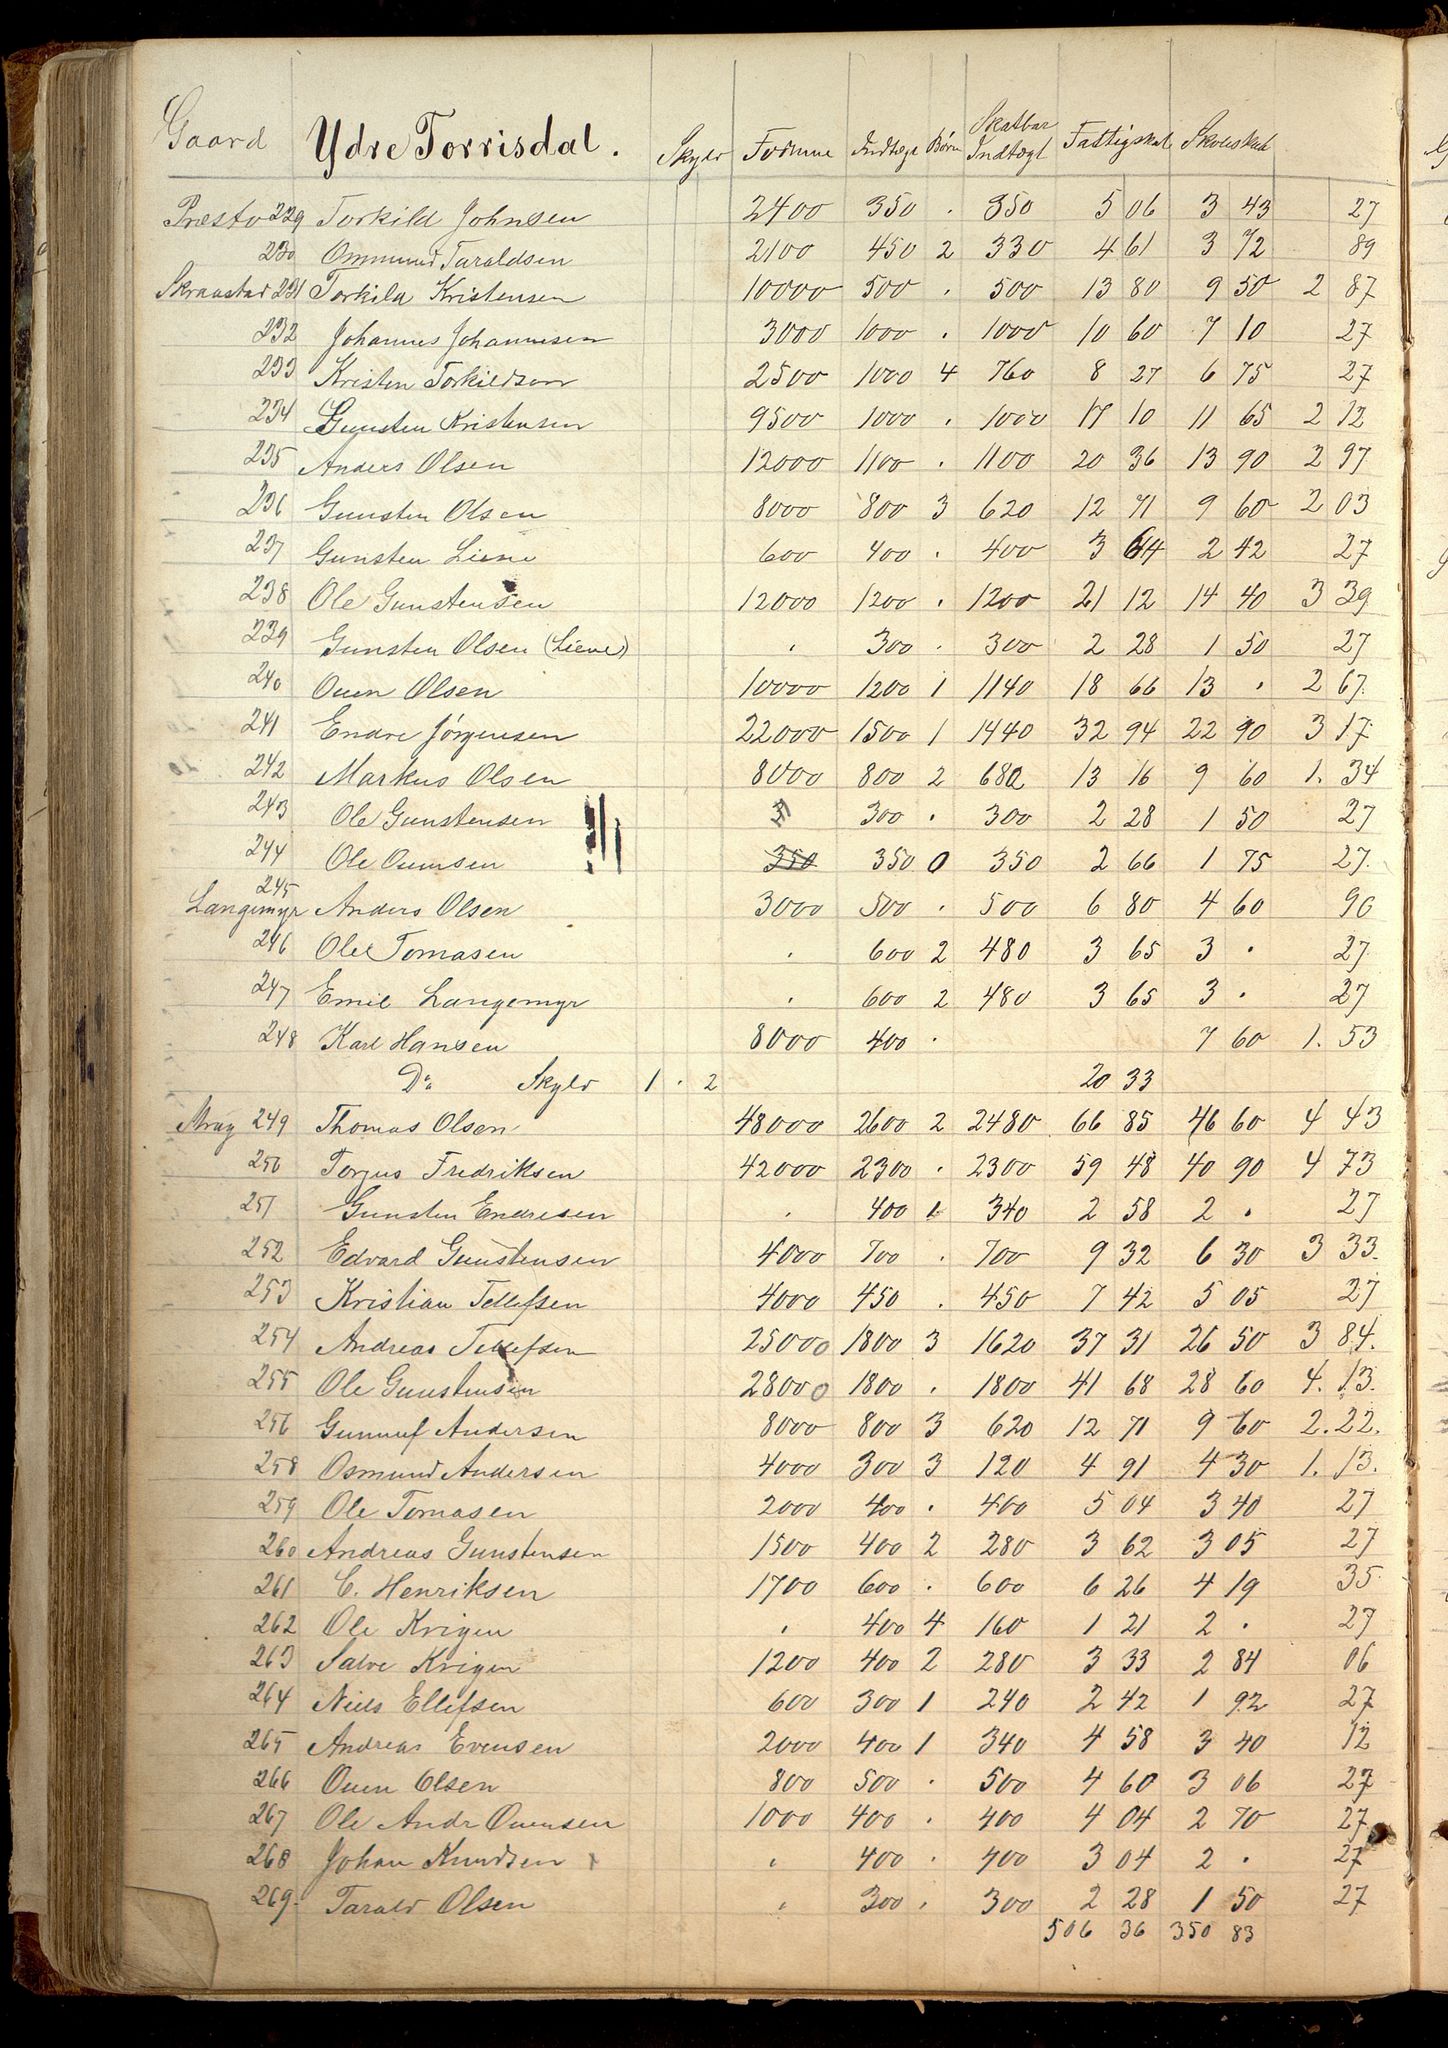 Gaard Ydre Torrisdal. Skyld Formue Indtægt Børn Skatbar Indtægt Fattigskat Skoleskat
Præstø 229 Torkild Johnsen 2400 350 . 350 5 06 3 43 27
230 Ommund Taraldsen 2100 450 2 330 4 61 3 72 89
Skraastad 231 Torkild Kristensen 10000 500 . 500 13 80 9 50 2 87
232 Johannes Johannesen 3000 1000 . 1000 10 60 7 10 27
233 Kristen Torkildsen 2500 1000 4 760 8 27 6 75 27
234 Gunsten Kristensen 9500 1000 . 1000 17 10 11 65 2 12
235 Anders Olsen 12000 1100 . 1100 20 36 13 90 2 97
236 Gunsten Olsen 8000 800 3 620 12 71 9 60 2 03
237 Gunsten Liene 600 400 . 400 3 64 2 42 27
238 Ole Gunstensen 12000 1200 . 1200 21 12 14 40 3 39
239 Gunsten Olsen (Liene) . 300 . 300 2 28 1 50 27
240 Ouen Olsen 10000 1200 1 1140 18 66 13 . 2 67.
241 Endre Jørgensen 22000 1500 1 1440 32 94 22 90 3 17
242 Markus Olsen 8000 800 2 680 13 16 9 60 1. 34
243 Ole Gunstensen 300 . 300 2 28 1 50 27
244 Ole Ouensen 350 350 0 350 2 66 1 75 27.
245
Langemyr Anders Olsen 3000 500 . 500 6 80 4 60 90
246 Ole Tomasen . 600 2 480 3 65 3 . 27
247 Emil Langemyr . 600 2 480 3 65 3 . 27
248 Karl Hansen 8000 400 . 7 60 1. 53
Do Skyld 1 . 2 20 33
249 Thomas Olsen 48000 2600 2 2480 66 85 46 60 4 43
250 Torjus Fredriksen 42000 2300 . 2300 59 48 40 90 4 73
251 Gunsten Endresen . 400 1 340 2 58 2 . 27
252 Edvard Gunstensen 4000 700 . 700 9 32 6 30 3 33.
253 Kristian Tellefsen 4000 450 . 450 7 42 5 05 27
254 Andreas Tellefsen 25000 1800 3 1620 37 31 26 50 3 84.
255 Ole Gunstensen 28000 1800 . 1800 41 68 28 60 4. 13.
256 Gunnuf Andersen 8000 800 3 620 12 71 9 60 2. 22.
258 Osmund Andersen 4000 300 3 120 4 91 4 30 1. 13.
259 Ole Tomasen 2000 400 . 400 5 04 3 40 27
260 Andreas Gunstensen 1500 400 2 280 3 62 3 05 27
261 C. Henriksen 1700 600 . 600 6 26 4 19 35
262 Ole Krigen . 400 4 160 1 21 2 . 27
263 Salve Krigen 1200 400 2 280 3 33 2 84 06
264 Niels Ellefsen 600 300 1 240 2 42 1 92 27
265 Andreas Evensen 2000 400 1 340 4 58 3 40 12
266 Ouen Olsen 800 500 . 500 4 60 3 06 27
267 Ole Andr Ouensen 1000 400 . 400 4 04 2 70 27
268 Johan Knudsen . 400 . 400 3 04 2 . 27
269. Tarald Olsen . 300 . 300 2 28 1 50 27
506 36 350 83